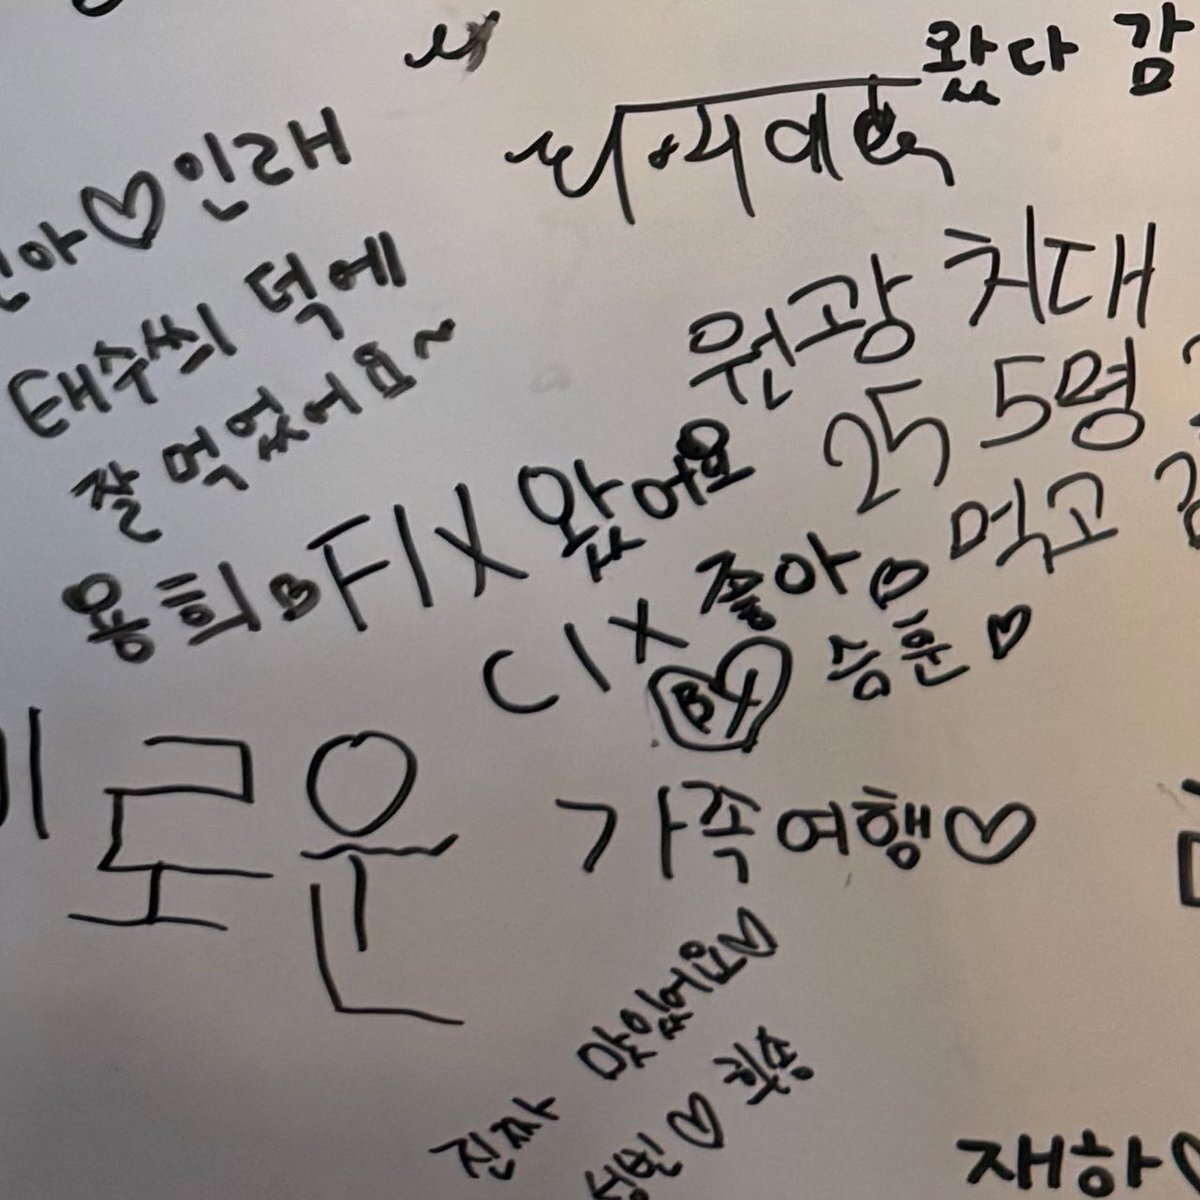 왔다 감
아♡인래
태수씌 덕에
잘 먹었어요~
원광 치대
25 5명
먹고
용희♡FIX 왔어요
CIX 좋아♡
BX 승훈♡
로운
가족여행♡
진짜 맛있어요♡
성빈♡희송
재하♡